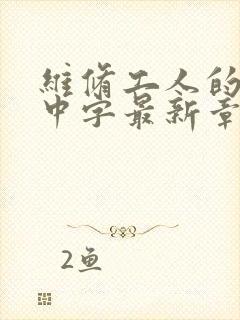 維脩工人的
中字最新章
2鱼